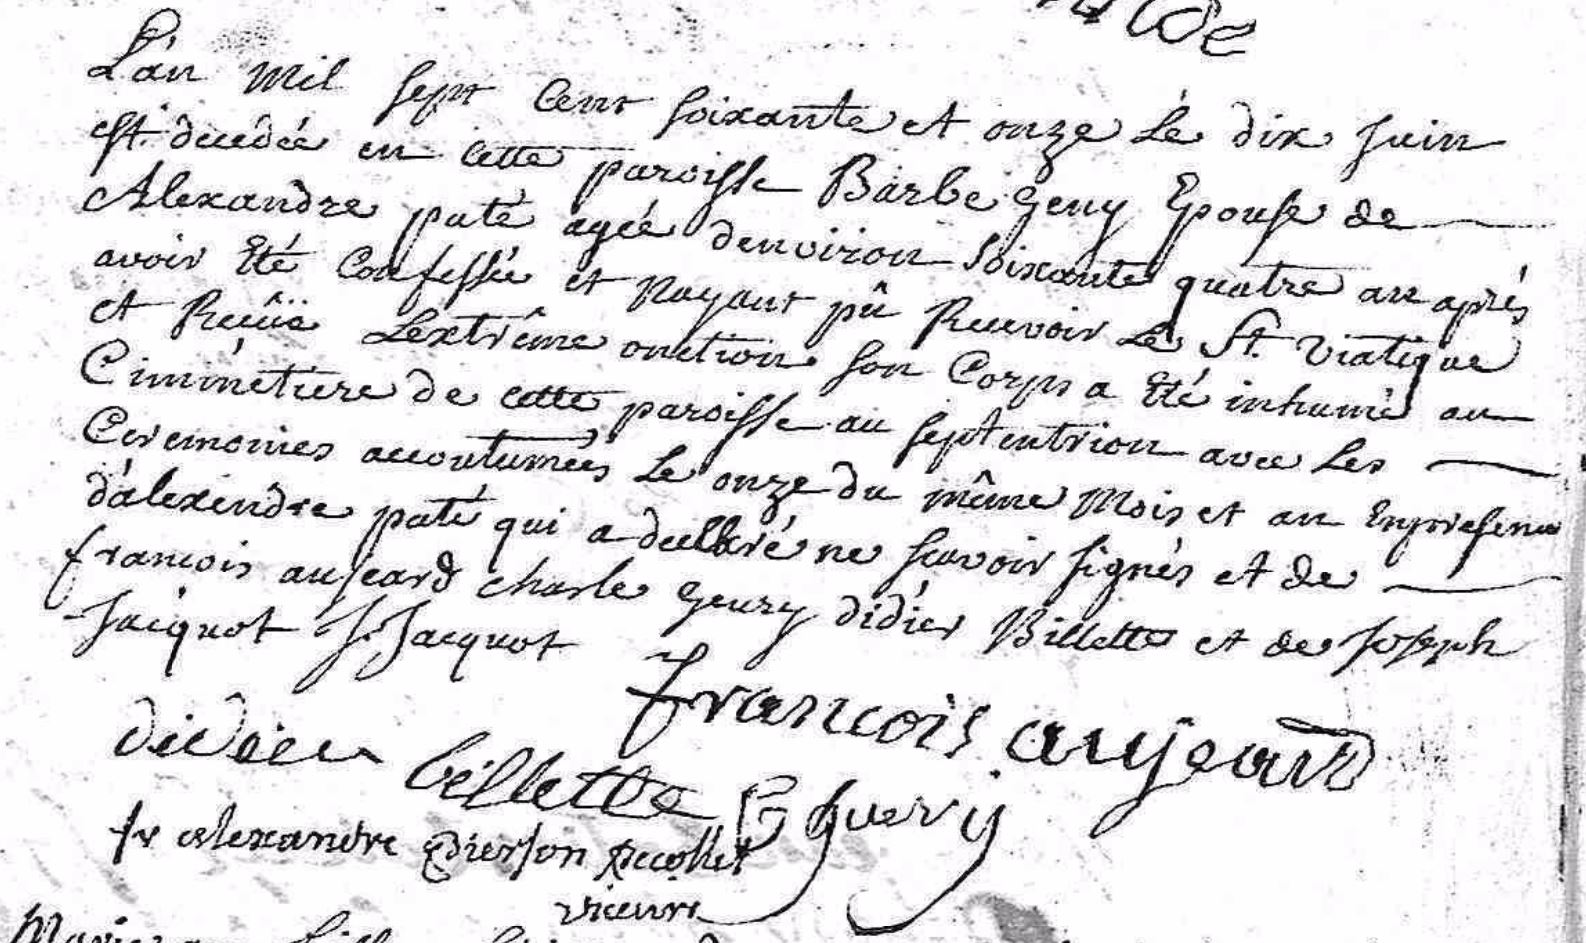 L'an mil sept cent soixante et onze le dix juin
est decedée en cette paroisse Barbe geny Epouse de
Alexandre paté agée denviron soixante quatre an aprés
avoir Eté Confessée et nayant pû Recevoir le St. viatique
et Reçûe Lextrême onction son Corps a Eté inhumé au
Ciminétiere de cette paroisse au septentrion avec les
Ceremonies accoutumées le onze du même Mois et an Enpresence
d'alexendre paté qui a declaré ne scavoir signés et de
francois aujeard charle geury didier Billette et de Joseph
Jacquot J Jacquot
francois aujeard
didier billette C guery
fr alexandre Pierson Recollet
vicaire